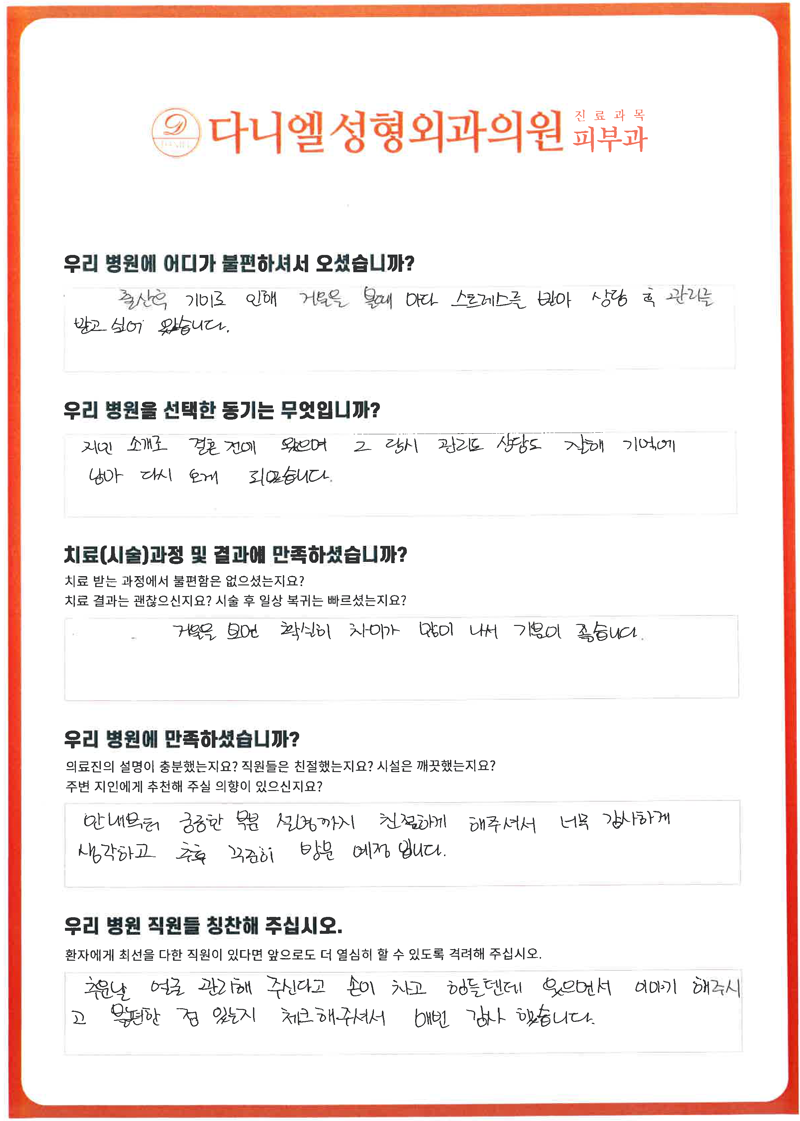 다니엘성형외과의원 진료과목 피부과
우리 병원에 어디가 불편하셔서 오셨습니까?
출산후 기미로 인해 거울을 볼때 마다 스트레스를 받아 상담 후 관리를
받고 싶어 왔습니다.
우리 병원을 선택한 동기는 무엇입니까?
지인 소개로 결혼전에 왔으며 그 당시 관리도 상담도 잘해 기억에
남아 다시 오게 되었습니다.
치료(시술)과정 및 결과에 만족하셨습니까?
치료 받는 과정에서 불편함은 없으셨는지요?
치료 결과는 괜찮으신지요? 시술 후 일상 복귀는 빠르셨는지요?
거울을 보면 확실히 차이가 많이 나서 기분이 좋습니다.
우리 병원에 만족하셨습니까?
의료진의 설명이 충분했는지요? 직원들은 친절했는지요? 시설은 깨끗했는지요?
주변 지인에게 추천해 주실 의향이 있으신지요?
안내부터 궁금한 부분 설명까지 친절하게 해주셔서 너무 감사하게
생각하고 추후 꾸준히 방문 예정 입니다.
우리 병원 직원들 칭찬해 주십시오.
환자에게 최선을 다한 직원이 있다면 앞으로도 더 열심히 할 수 있도록 격려해 주십시오.
추운날 얼굴 관리해 주신다고 손이 차고 힘들텐데 웃으면서 이야기 해주시
고 불편한 점 있는지 체크해주셔서 매번 감사 했습니다.